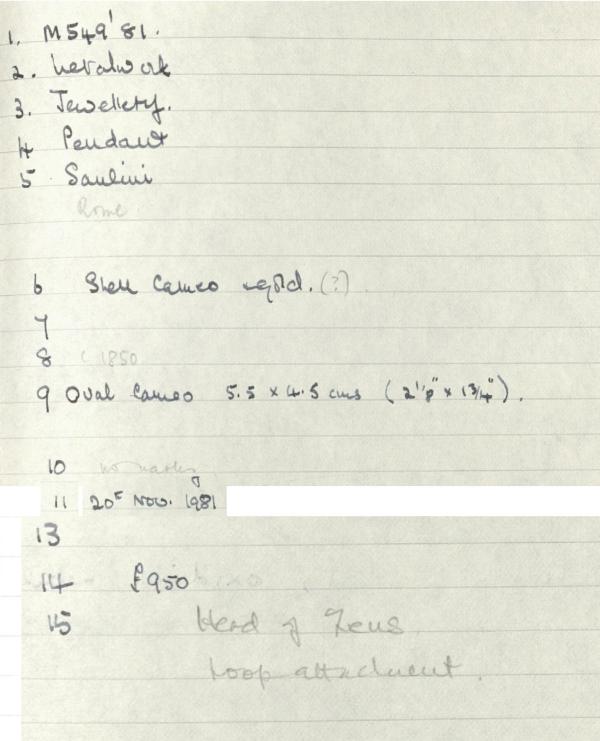 1. M549'81.
2. Metalwork
3. Jewellery.
4 Pendant
5 Saulini
Rome
6 Shell Cameo in gold. (?)
7
8 c 1850
9 Oval Cameo 5.5 x 4.5 cms (2 1/8" x 1 3/4").
10 no marks
11 20t Nov. 1981
13
14 £950
15 Head of Zeus
Loop attachment.